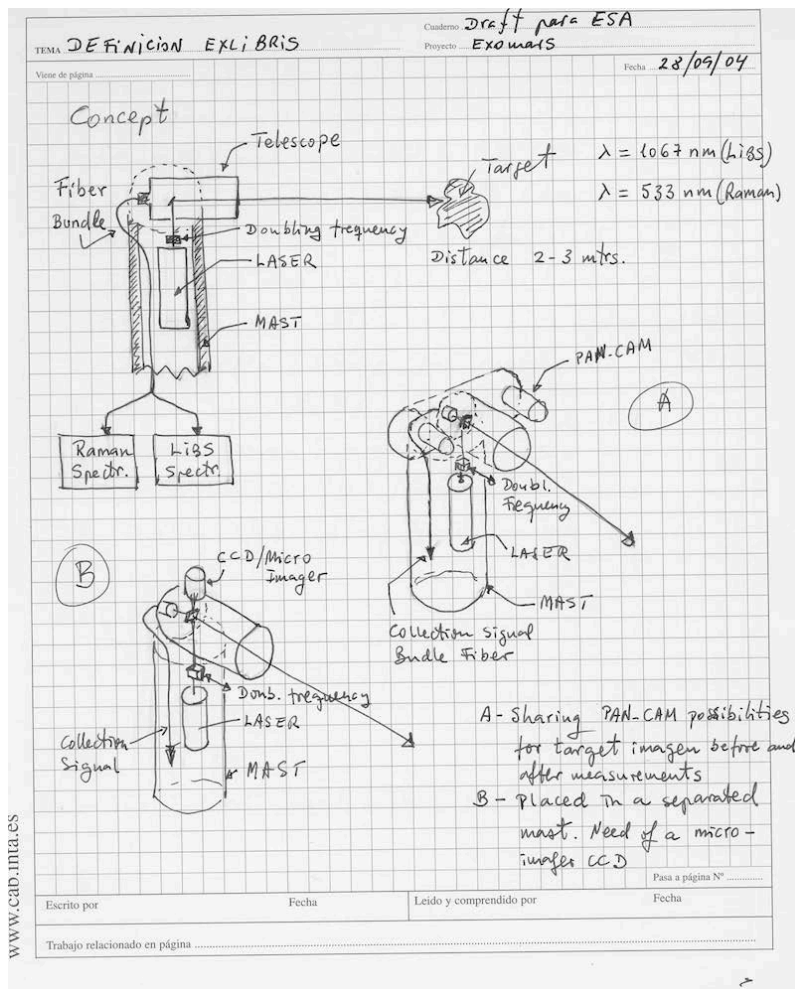 TEMA DEFINICION EXLIBRIS
Cuaderno Draft para ESA
Proyecto Exomars
Viene de página
Fecha 28/09/04
Concept
Telescope
Fiber
Bundle
Target
λ = 1067 nm (LIBS)
λ = 533 nm (Raman)
Doubling frequency
LASER
Distance 2-3 mtrs.
MAST
Raman
Spectr.
LIBS
Spectr.
PAN-CAM
A
Doubl.
Frequency
LASER
MAST
Collection Signal
Bundle Fiber
B
CCD/Micro
Imager
Doub. frequency
LASER
Collection
Signal
MAST
A- Sharing PAN-CAM possibilities
for target imagen before and
after measurements
B- Placed in a separated
mast. Need of a micro-
imager CCD
Pasa a página Nº
Escrito por Fecha Leido y comprendido por Fecha
Trabajo relacionado en página
www.cab.inta.es